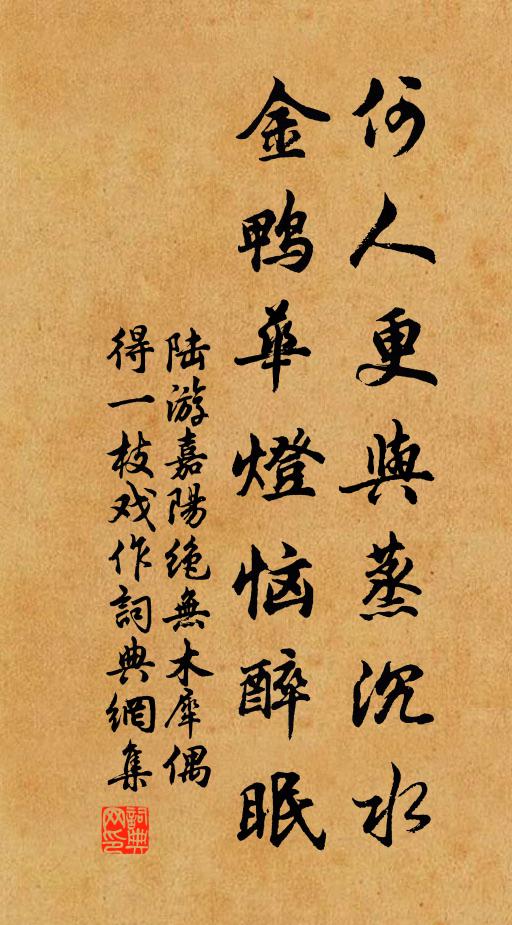 何人更與蒸沉水
金鴨華燈恼醉眠
陆游嘉陽絶無木犀偶
得一枝戏作詞典網集
詞典
网印